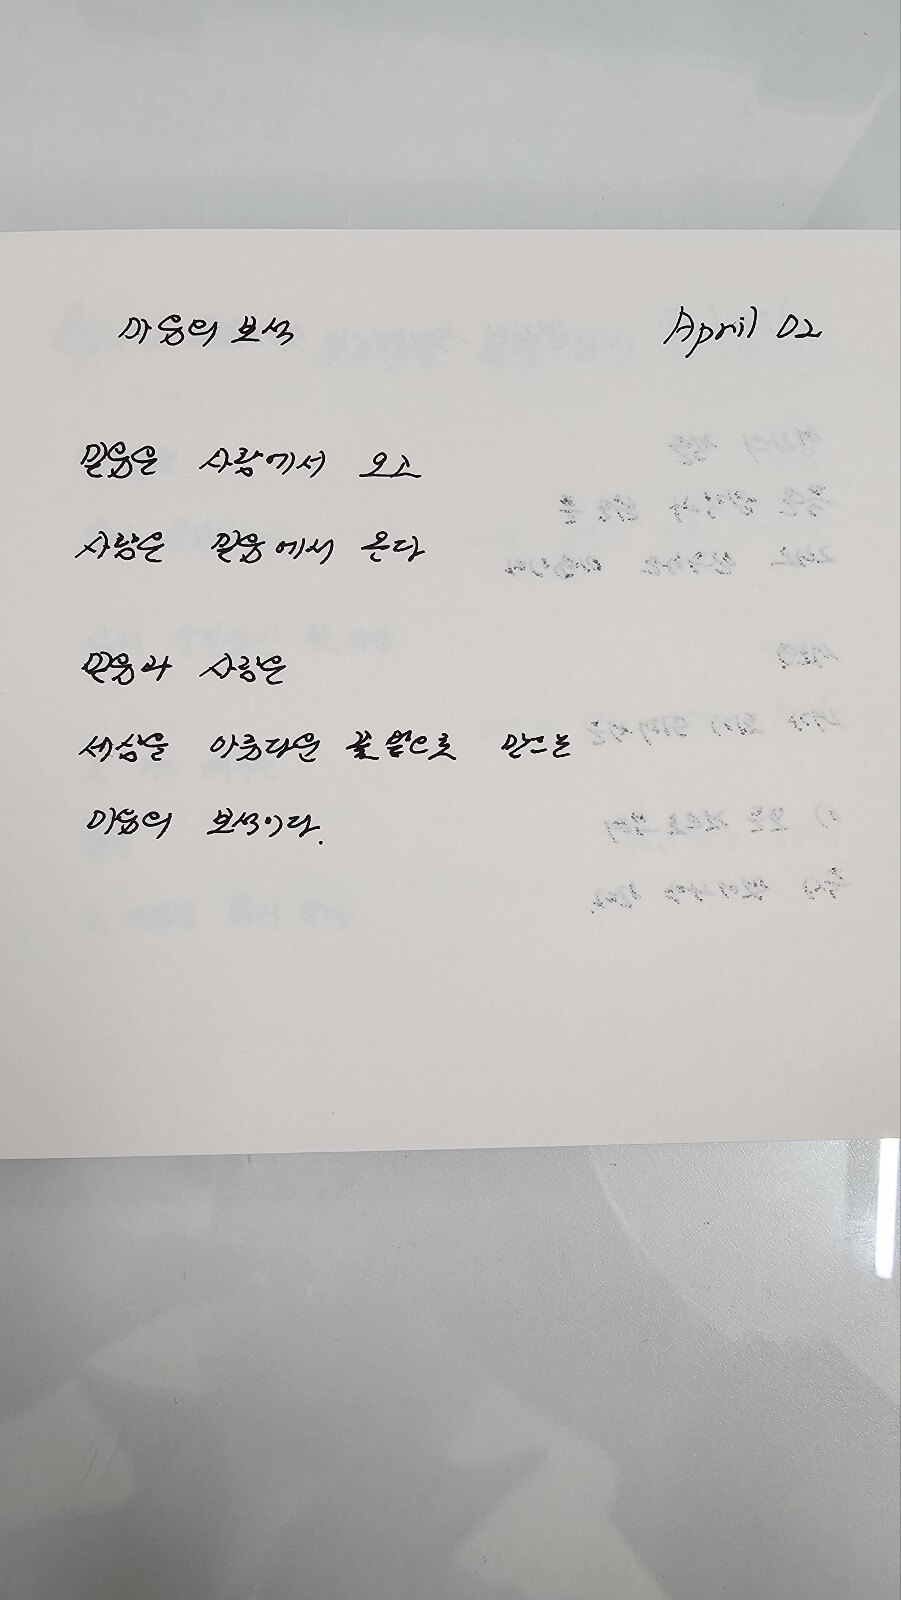 마음의 보석 April 02
믿음은 사랑에서 오고
사랑은 믿음에서 온다
믿음과 사랑은
세상을 아름다운 꽃밭으로 만드는
마음의 보석이다.